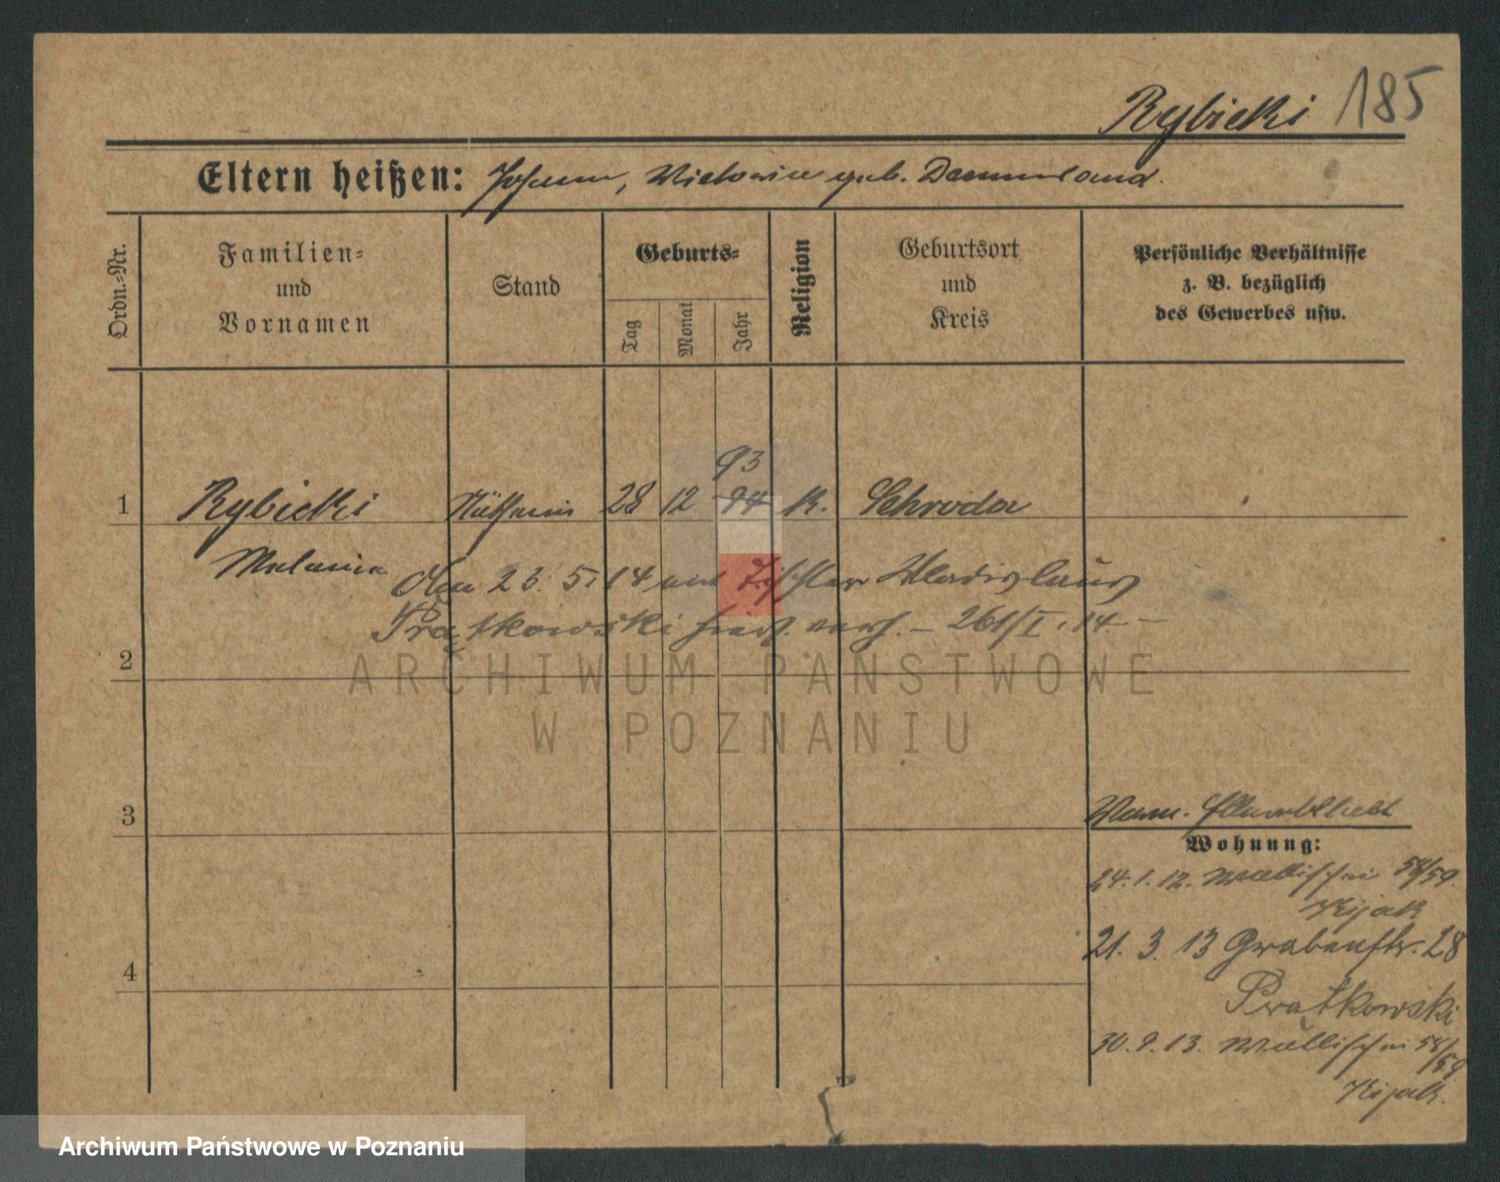 Rybicki 185
Eltern heißen: Johann, Victoria geb.
Ordn.-Nr.
Familien-
und
Vornamen
Stand
Geburts-
Tag
Monat
Jahr
Religion
Geburtsort
und
Kreis
Persönliche Verhältnisse
z. B. bezüglich
des Gewerbes usw.
93
1 Rybicki Näherin 28 12 94 K. Schroda
Melania
den 23. 5. 14 mit Tischler Wladislaus
Prątkowski hier verh. – 261/I. 14. –
2
ARCHIWUM PAŃSTWOWE
W POZNANIU
3
Wohnung:
24. 1. 12. Wallischei 58/59.
Kijak
21. 3. 13 Grabenstr. 28
Prątkowski
4
30. 9. 13. Wallischei 58/59
Kijak.
Archiwum Państwowe w Poznaniu